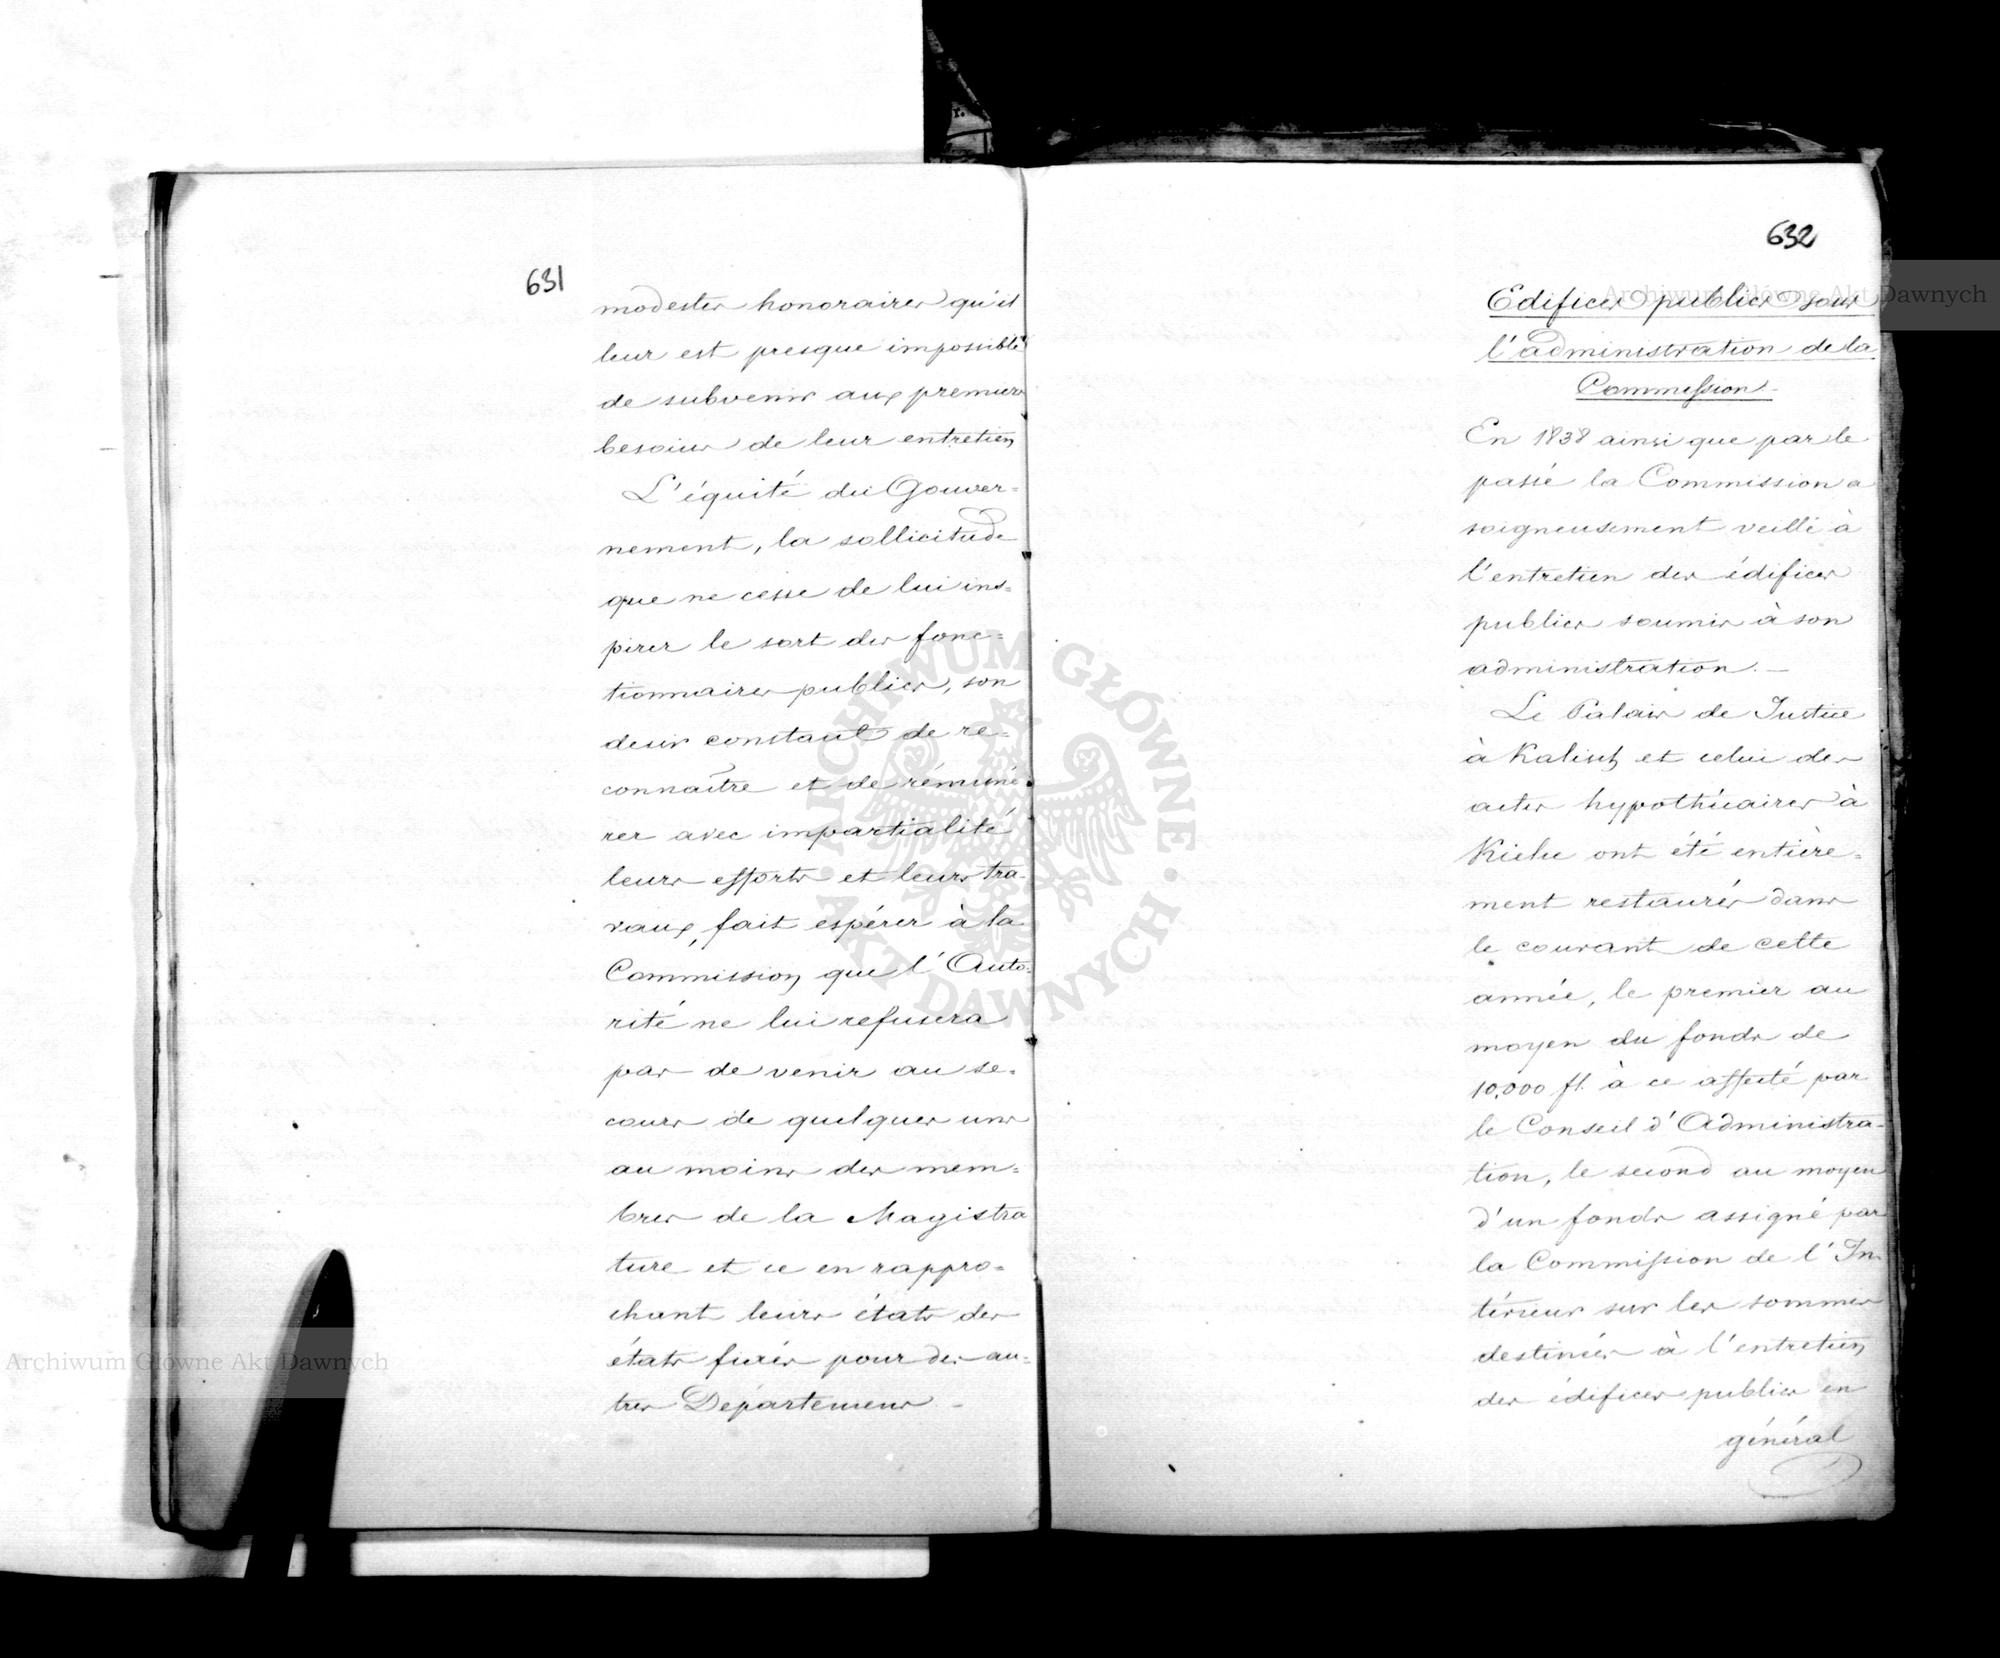 631
modestes honoraires qu'il
leur est presque impossible
de subvenir aux premiers
besoins de leur entretien
L'équité du Gouver=
nement, la sollicitude
que ne cesse de lui ins=
pirer le sort des fonc=
tionnaires publics, son
desir constant de re=
connaître et de rémuné
rer avec impartialité
leurs efforts et leurs tra-
vaux, fait espérer à la
Commission que l'Auto-
rité ne lui refusera
pas de venir au se=
cours de quelques uns
au moins des mem=
bres de la Magistra
ture et ce en rappro=
chant leurs états des
états fixés pour des au=
tres Départemens -
632
Edifices publics sous
l'administration de la
Commission.
En 1838 ainsi que par le
passé la Commission a
soigneusement veillé à
l'entretien des édifices
publics soumis à son
administration. -
Le Palais de Justice
à Kalisch et celui des
actes hypothécaires à
Kielce ont été entière=
ment restaurés dans
le courant de cette
année, le premier au
moyen du fonds de
10,000 fl. à ce affecté par
le Conseil d'Administra-
tion, le second au moyen
d'un fonds assigné par
la Commission de l'In
térieur sur les sommes
destinées à l'entretien
des édifices publics en
général
Archiwum Główne Akt Dawnych
Archiwum Główne Akt Dawnych
ARCHIWUM GŁÓWNE · AKT DAWNYCH ·